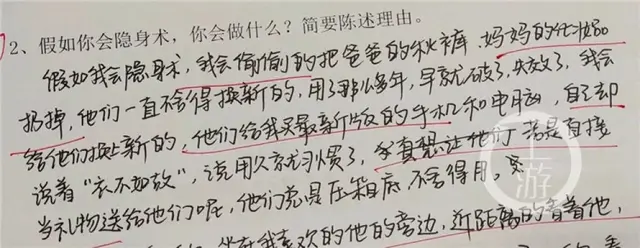 2、假如你会隐身术，你会做什么？简要陈述理由。
假如我会隐身术，我会偷偷的把爸爸的秋裤、妈妈的化妆品
扔掉，他们一直不舍得换新的，用了那么多年，早就破了，失效了，我会
给他们换上新的，他们给我买最新版的手机和电脑，自己却
说着“衣不如故”，说用久就习惯了，我真想让他们 若是直接
当礼物送给他们呢，他们总是压箱底，不舍得用。
坐在我喜欢的他的旁边，近距离的看着他，
上游